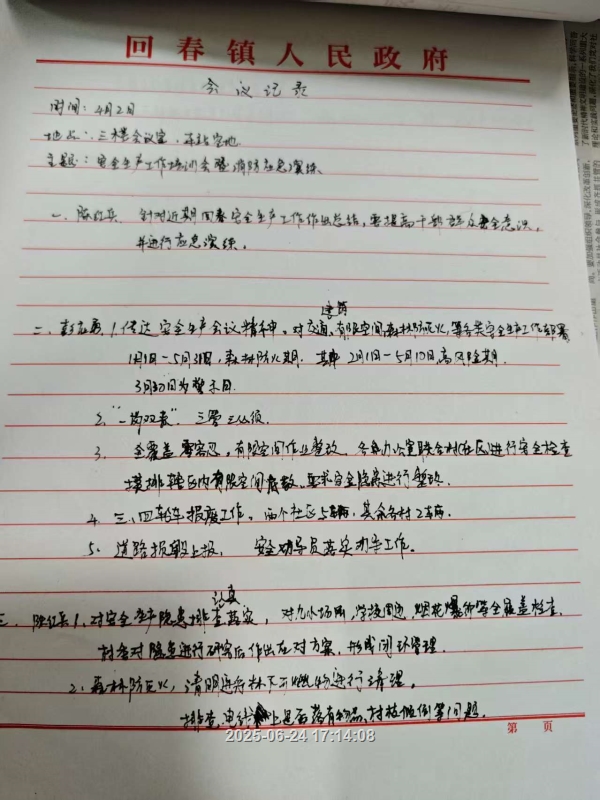 回春镇人民政府
会议记录
时间：4月2日
地点：三楼会议室，车站空地
主题：安全生产工作培训会暨消防应急演练
一、陈红兵 针对近期回春安全生产工作作出总结，要提高干部群众安全意识，
并进行应急演练。
建筑
二、1.传达安全生产会议精神。对交通、有限空间、森林防灭火，等各类安全生产工作部署
1月1日－5月31日，森林防火期. 其中 2月1日－5月10日高风险期.
3月30日为警示日.
2. "一岗双责" 三管三必须
3. 全覆盖零容忍，有限空间作业整改. 各单办公室联合村(社区)进行安全检查
摸排辖区内有限空间底数，要求安全隐患进行整改.
4. 三、四轮车报废工作，两个社区5辆，其余各村2辆.
5. 道路损毁上报， 安全劝导员落实劝导工作。
认真
三、陈红兵 1. 对安全生产隐患排查落实， 对九小场所，学校周边，烟花爆竹等全覆盖检查.
针对隐患进行研究后作出应对方案，形成闭环管理.
2. 森林防灭火，清明进行林下可燃物进行清理。
排查电线上是否落有物品，村枝倾倒等问题.
第 页
2025-06-24 17:14:08